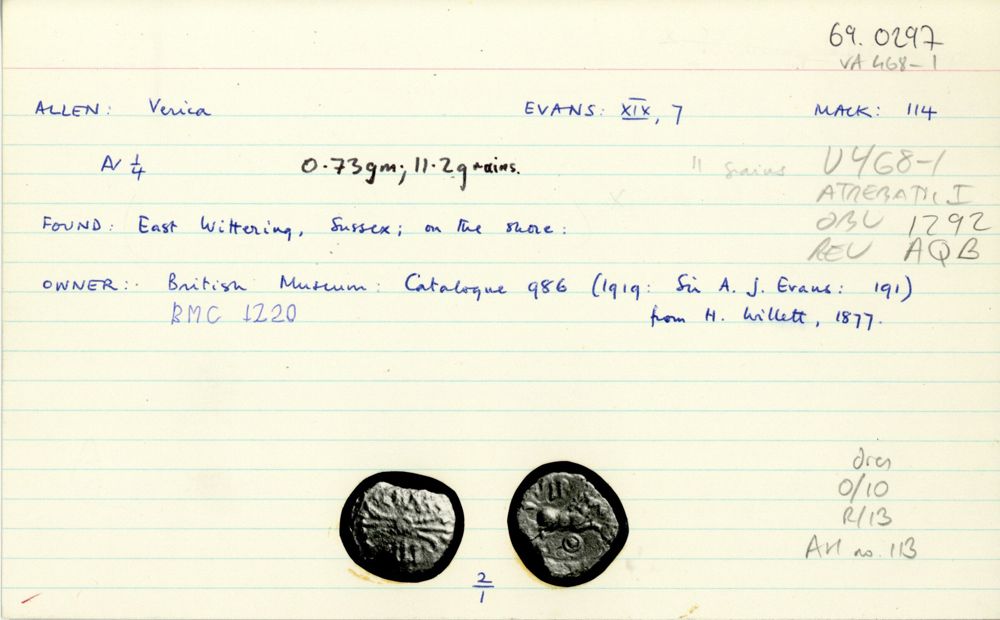 69. 0297
VA 468-1
ALLEN: Verica EVANS: XIX, 7 MACK: 114
AV 1/4 0.73gm; 11.2grains. " grains V468-1
ATREBATIC I
FOUND: East Wittering, Sussex; on the shore: OBV 1292
REV AQB
OWNER: British Museum: Catalogue 986 (1919: Sir A. J. Evans: 191)
BMC 1220 from H. Willett, 1877.
dies
O/10
R/13
Art no. 113
2/1